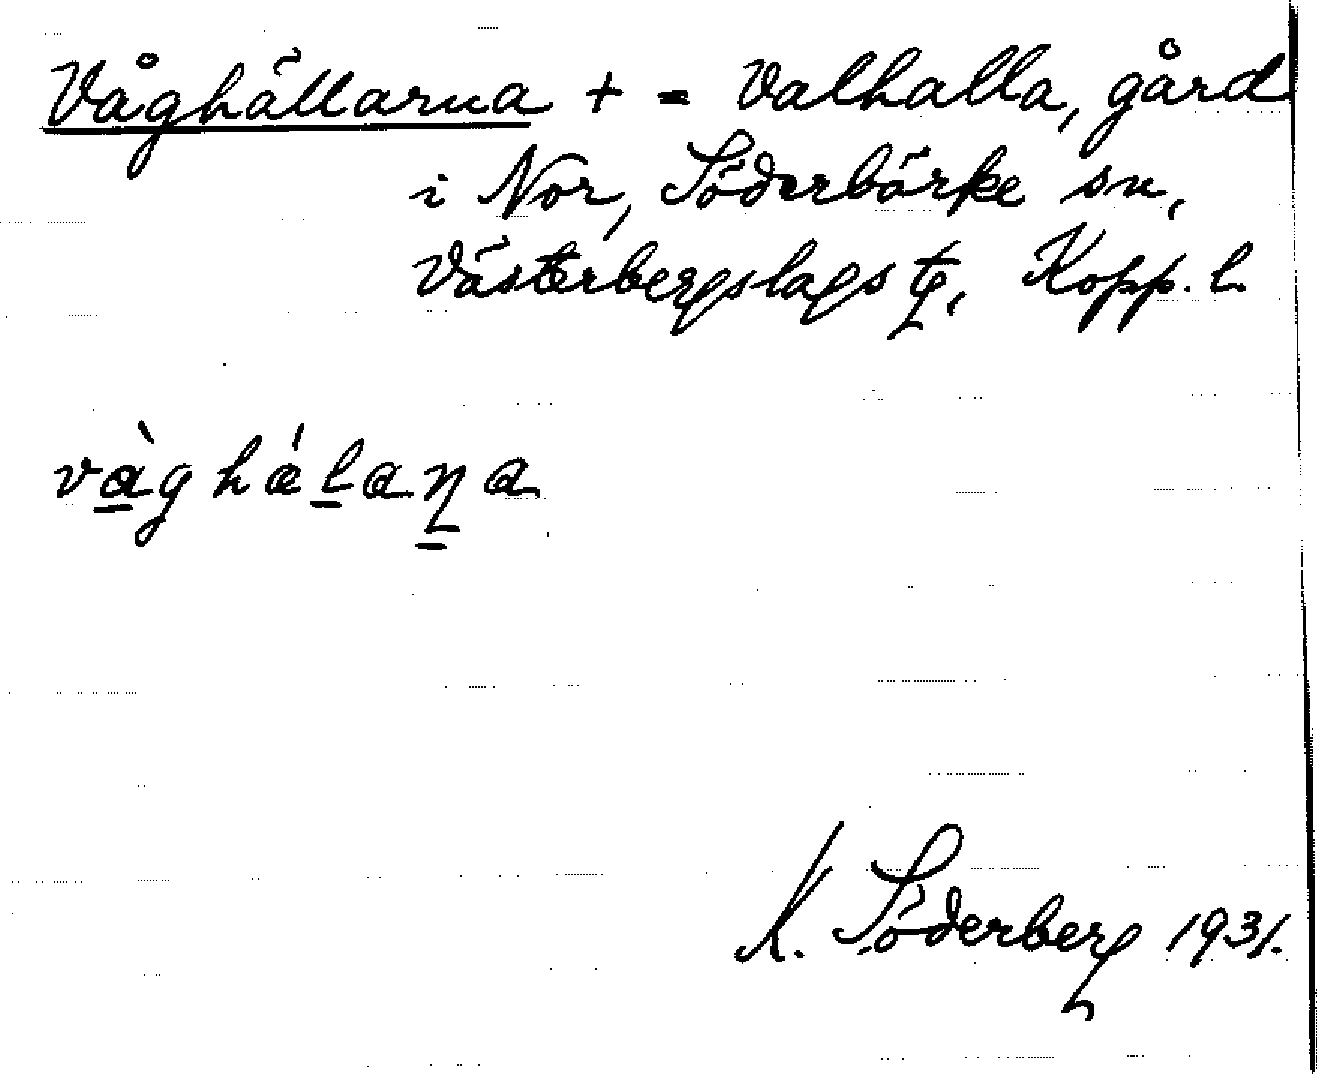 Våghällarna + = Valhalla, gård
i Nor, Söderbärke sn,
Västerbergslags tg, Kopp. l.
vàghálaṉa
K. Söderberg 1931.